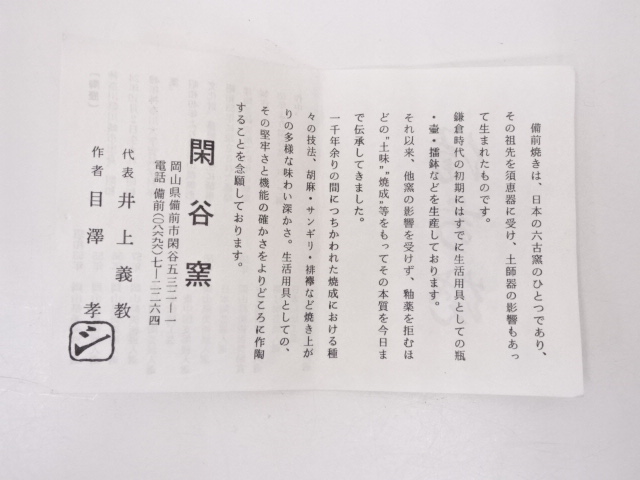 備前焼きは、日本の六古窯のひとつであり、
その祖先を須恵器に受け、土師器の影響もあっ
て生まれたものです。
鎌倉時代の初期にはすでに生活用具としての瓶
・壷・擂鉢などを生産しております。
それ以来、他窯の影響を受けず、釉薬を拒むほ
どの"土味""焼成"等をもってその本質を今日ま
で伝承してきました。
一千年余りの間につちかわれた焼成における種
々の技法、胡麻・サンギリ・緋襷など焼き上が
りの多様な味わい深かさ。生活用具としての、
その堅牢さと機能の確かさをよりどころに作陶
することを念願しております。
閑谷窯
岡山県備前市閑谷五三二ー一
電話 備前(〇八六九六)七ー二二六四
代表 井上義教
作者 目澤孝
シ